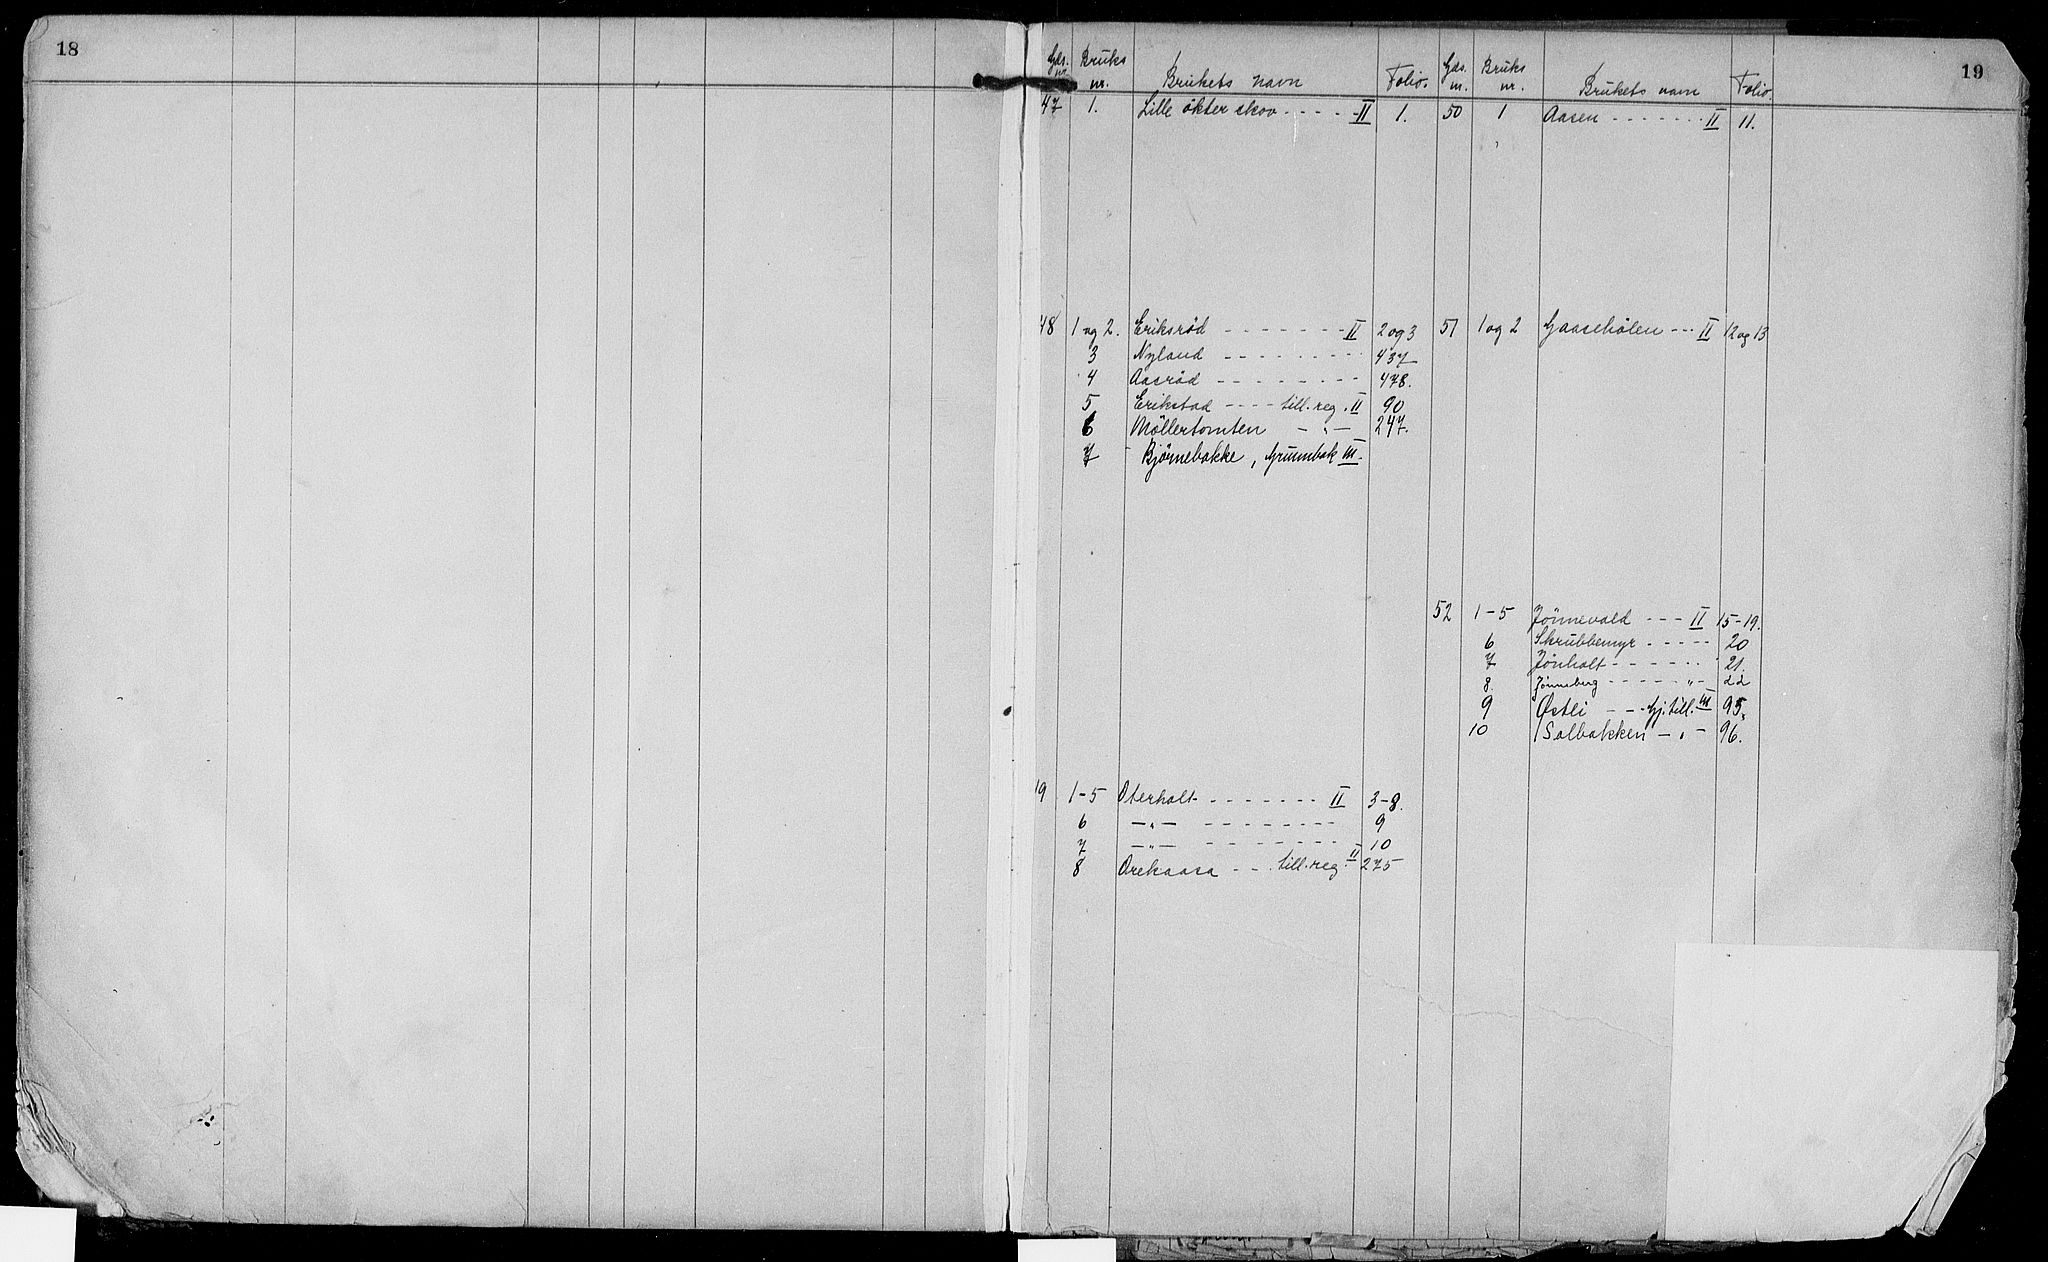 18
19
Gds. nr. Bruks nr. Brukets navn Folio.
47 1. Lille økter skov - - - - - II 1.
48 1 og 2. Eriksrød - - - - - - - II 2 og 3
3 Nyland - - - - - - - - 437
4 Aasrød - - - - - - - - 478.
5 Erikstad - - - - till. reg. II 90
6 Møllertomten - „ - 247.
7 Bjørnebakke, Grunnbok III.
19 1-5 Oterholt - - - - - - - II 3-8.
6 -„- - - - - - - - - 9
7 -„- - - - - - - - - 10
8 Orekaasa - - . till. reg. II 275
Gds. nr. Bruks nr. Brukets navn Folio.
50 1 Aasen - - - - - - - II 11.
51 1 og 2 Gaasehølen - - - II 12 og 13
52 1-5 Jønnevald - - - II 15-19.
6 Skrubbemyr - - - - - 20
7 Jønholt - - - - - - 21.
8. Jønneberg - - - - - „ - 22
9 Østli - - Gj. till. III 95.
10 Solbakken - „ - 96.